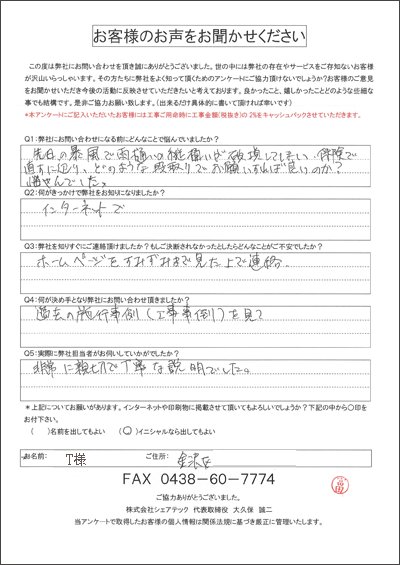 お客様のお声をお聞かせください
この度は弊社にお問い合わせを頂き誠にありがとうございました。世の中には弊社の存在やサービスをご存知ないお客様
が沢山いらっしゃいます。その方たちに弊社をよく知って頂くためのアンケートにご協力頂けないでしょうか?お客様のご意見
をお聞かせいただき今後の活動に反映させていただきたいと考えております。良かったこと、嬉しかったことどのような些細な
事でも結構です。是非ご協力お願い致します。(出来るだけ具体的に書いて頂ければ幸いです)
*本アンケートにご記入いただいたお客様には工事ご用命時に工事金額(税抜き)の2%をキャッシュバックさせていただきます。
Q1:弊社にお問い合わせになる前にどんなことで悩んでいましたか?
先日の暴風で雨樋いの縦樋いが破損してしまい、保険で
直すに辺り、どのような段取りでお願いすれば良いのか?
悩んでした。
Q2:何がきっかけで弊社をお知りになりましたか?
インターネットで
Q3:弊社を知りすぐにご連絡頂けましたか?もしご決断されなかったとしたらどんなことがご不安でしたか?
ホームページをすみずみまで見た上で連絡。
Q4:何が決め手となり弊社にお問い合わせ頂きましたか?
過去の施行事例(工事事例)を見て
Q5:実際に弊社担当者がお伺いしていかがでしたか?
非常に親切で丁寧な説明でした。
*上記についてお願いがあります。インターネットや印刷物に掲載させて頂いてもよろしいでしょうか?下記の中から〇印を
お付下さい。
( )名前を出してもよい (〇)イニシャルなら出してもよい
お名前: T様 ご住所: 金沢区
FAX 0438-60-7774
ご協力ありがとうございました。
株式会社シェアテック 代表取締役 大久保 誠二
当アンケートで取得したお客様の個人情報は関係法規に基づき厳正に管理いたします。